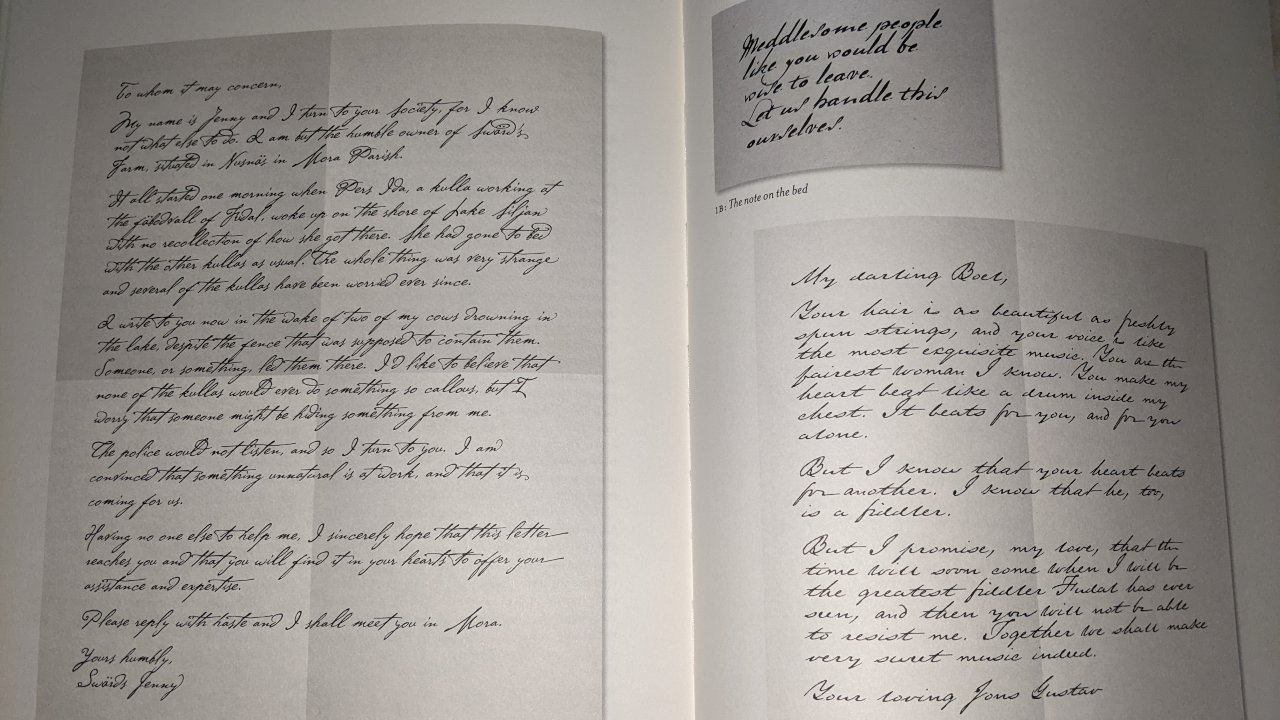 To whom it may concern,
My name is Jenny and I turn to your Society, for I know
not what else to do. I am but the humble owner of Swärds
Farm, situated in Nusnäs in Mora Parish.
It all started one morning when Pers Ida, a kulla working at
the fäbodvall of Fudal, woke up on the shore of Lake Siljan
with no recollection of how she got there. She had gone to bed
with the other kullas as usual. The whole thing was very strange
and several of the kullas have been worried ever since.
I write to you now in the wake of two of my cows drowning in
the lake, despite the fence that was supposed to contain them.
Someone, or something, led them there. I'd like to believe that
none of the kullas would ever do something so callous, but I
worry that someone might be hiding something from me.
The police would not listen, and so I turn to you. I am
convinced that something unnatural is at work, and that it is
coming for us.
Having no one else to help me, I sincerely hope that this letter
reaches you and that you will find it in your hearts to offer your
assistance and expertise.
Please reply with haste and I shall meet you in Mora.
Yours humbly,
Swärds Jenny
Meddlesome people
like you would be
wise to leave.
Let us handle this
ourselves.
1B: The note on the bed
My darling Boel,
Your hair is as beautiful as freshly
spun strings, and your voice is like
the most exquisite music. You are the
fairest woman I know. You make my
heart beat like a drum inside my
chest. It beats for you, and for you
alone.
But I know that your heart beats
for another. I know that he, too,
is a fiddler.
But I promise, my love, that the
time will soon come when I will be
the greatest fiddler Fudal has ever
seen, and then you will not be able
to resist me. Together we shall make
very sweet music indeed.
Your loving Jons Gustav